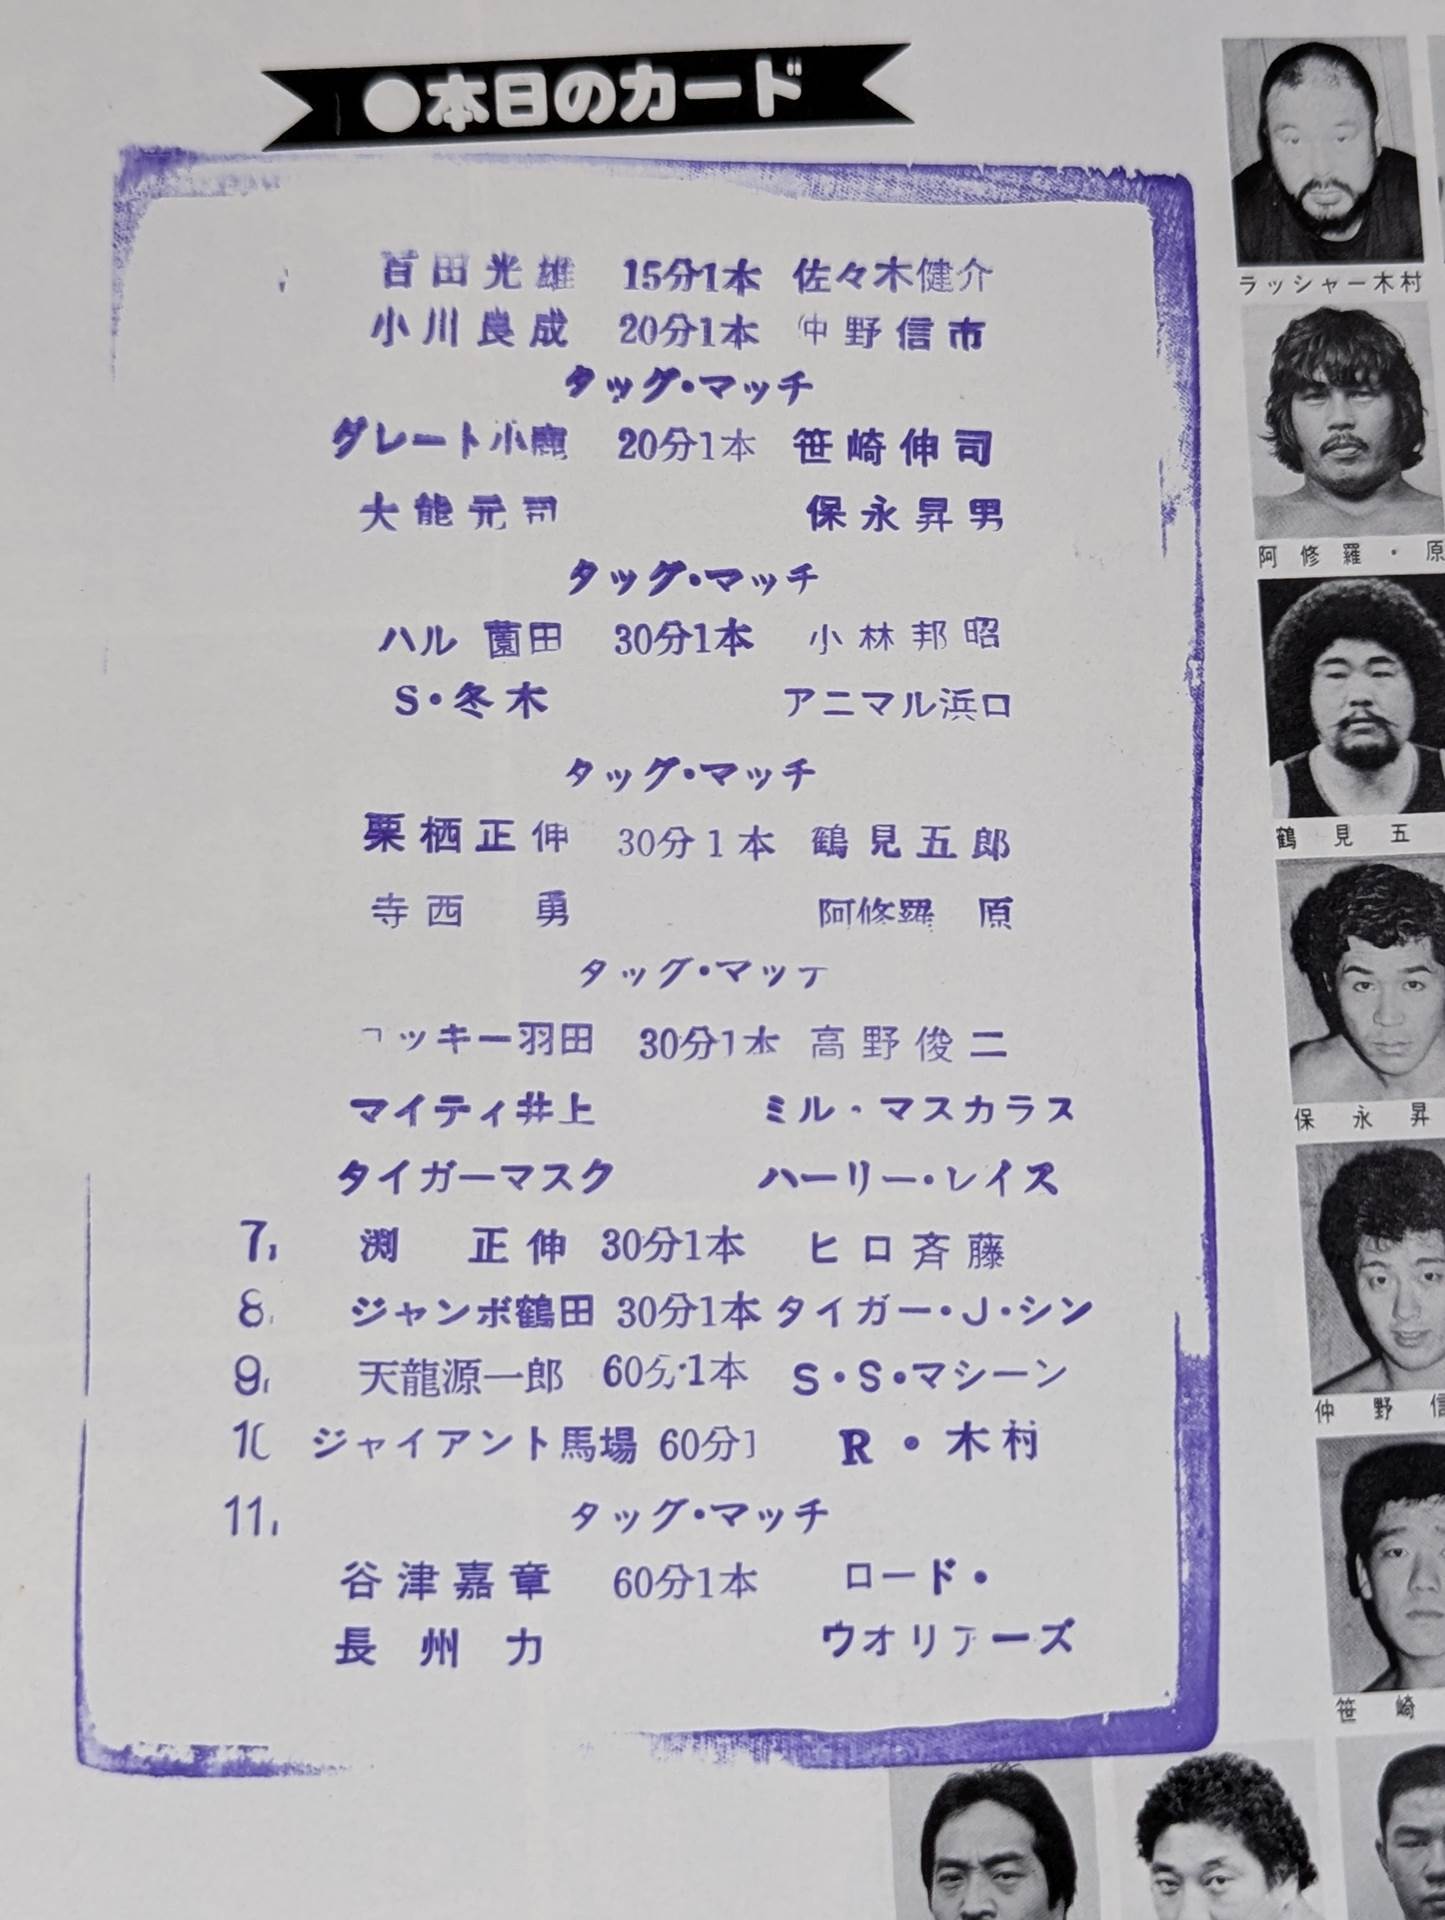 ●本日のカード
百田光雄 15分1本 佐々木健介
小川良成 20分1本 仲野信市
タッグ・マッチ
グレート小鹿 20分1本 笹崎伸司
大熊元司 保永昇男
タッグ・マッチ
ハル 薗田 30分1本 小林邦昭
S・冬木 アニマル浜口
タッグ・マッチ
栗栖正伸 30分1本 鶴見五郎
寺西 勇 阿修羅 原
タッグ・マッチ
ロッキー羽田 30分1本 高野俊二
マイティ井上 ミル・マスカラス
タイガーマスク ハーリー・レイス
7, 渕 正伸 30分1本 ヒロ斉藤
8, ジャンボ鶴田 30分1本 タイガー・J・シン
9, 天龍源一郎 60分1本 S・S・マシーン
10 ジャイアント馬場 60分1 R・木村
11, タッグ・マッチ
谷津嘉章 60分1本 ロード・
長州力 ウオリアーズ
ラッシャー木村
阿修羅・原
鶴見五
保永昇
仲野信
笹崎